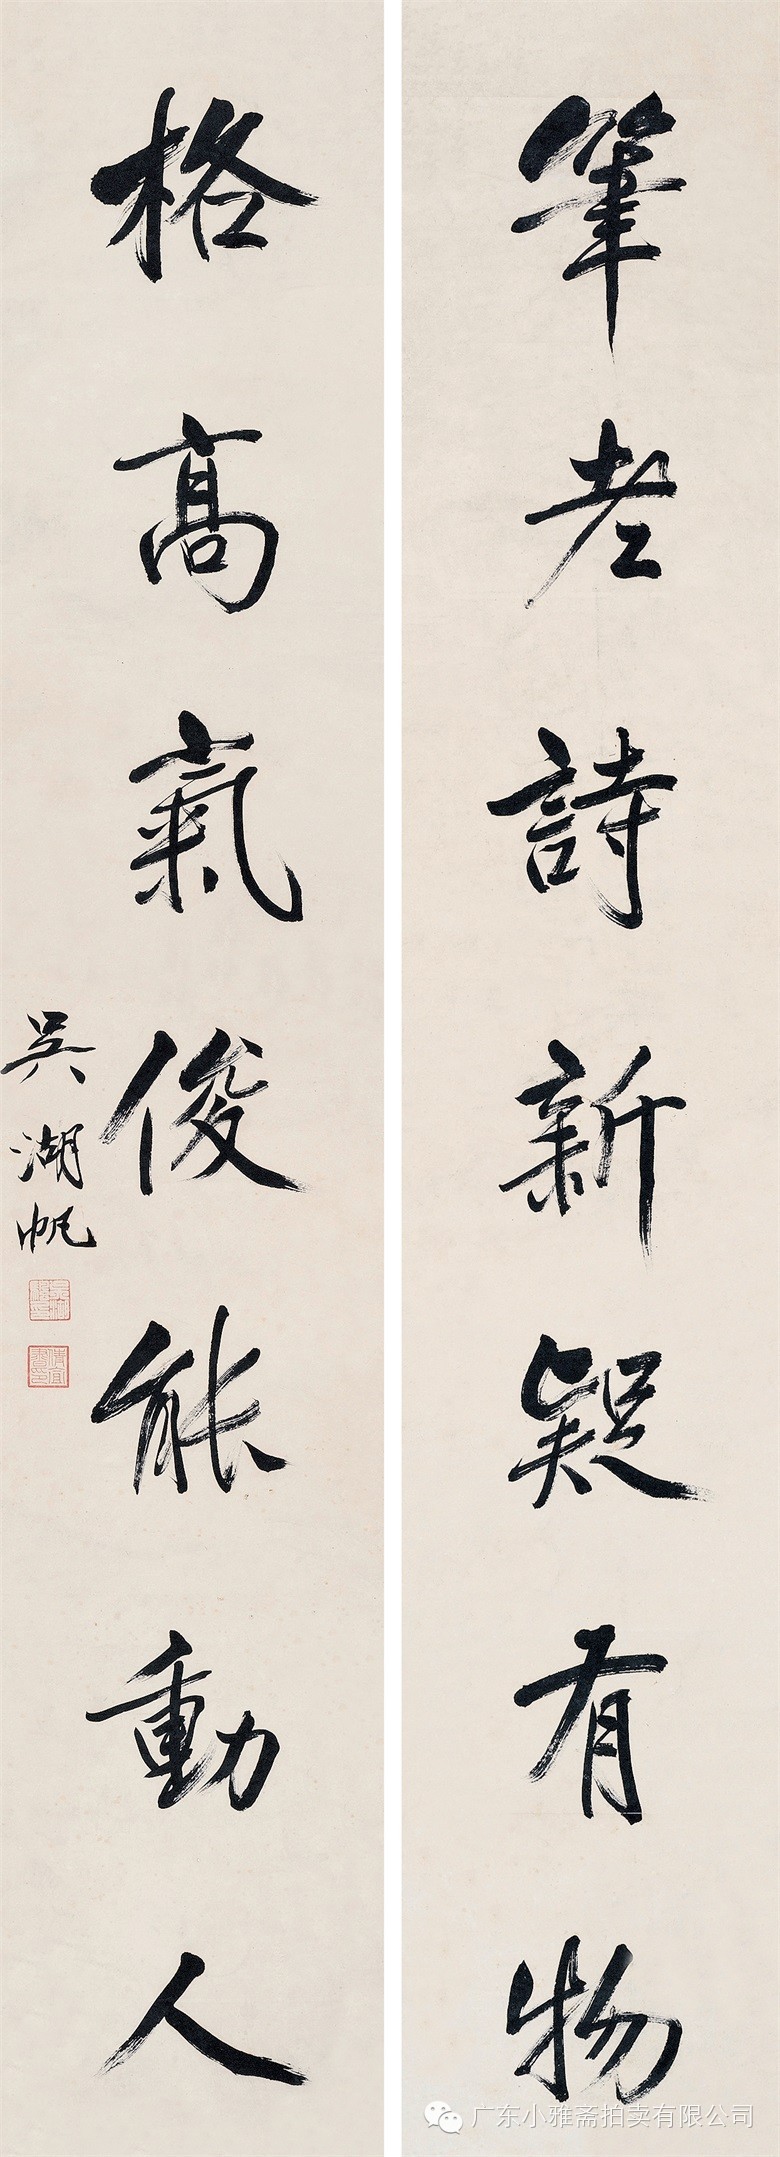 筆老詩新疑有物
格高氣俊能動人
吳湖帆
广东小雅斋拍卖有限公司